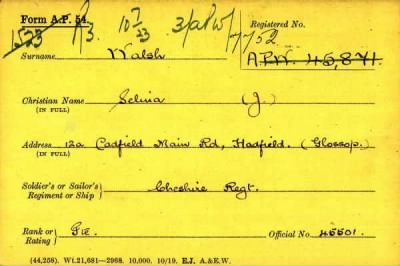 Form A.P. 54.
1535 P3 10/23 3/aPW/7752 Registered No.
Surname Walsh A.P.W. 45,871.
Christian Name Selina (J.)
(IN FULL)
Address 12a Cadfield Main Rd, Hadfield. (Glossop.)
(IN FULL)
Soldier's or Sailor's Regiment or Ship Cheshire Regt.
Rank or Rating Pte. Official No. 45501.
(44,258). Wt.21,681—2968. 10,000. 10/19. E.J. A.&E.W.